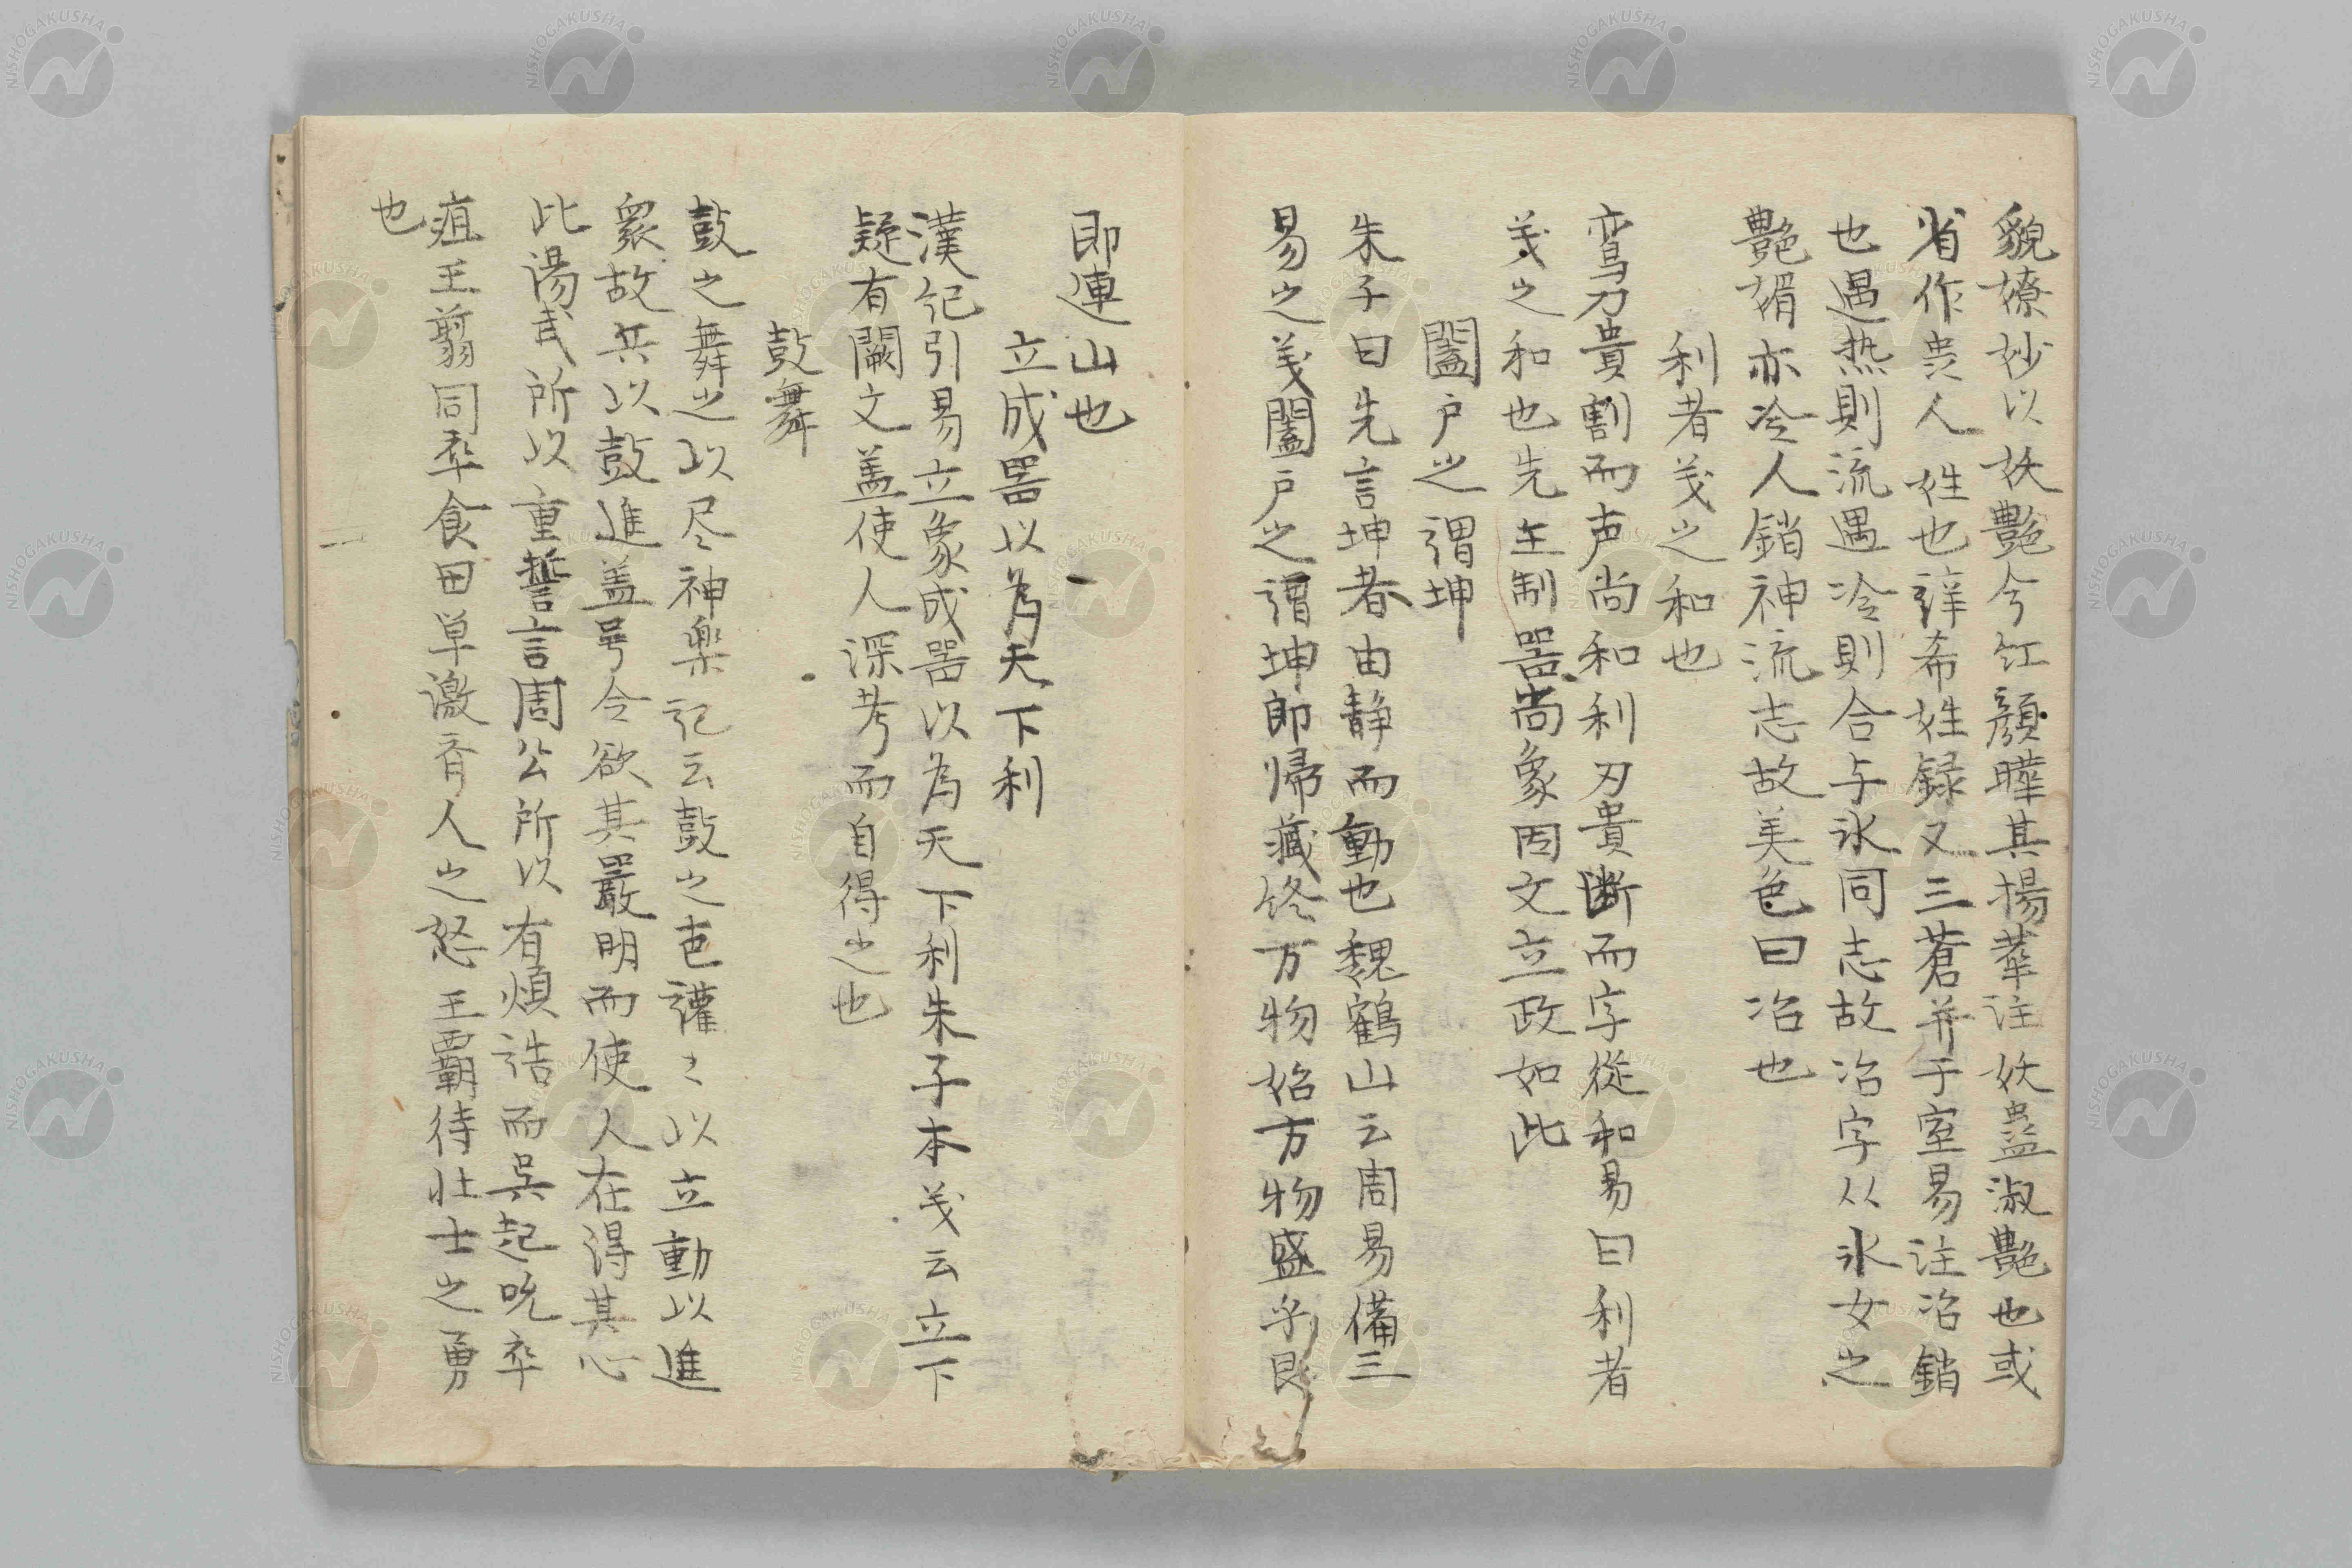 貌嫽妙以妖艷兮紅顔曄其揚華注妖蠱淑艷也或
省作蛊人姓也詳希姓録又三蒼并于室易注冶銷
也遇热則流遇冷則合与氷同志故冶字从氷女之
艶媚亦冷人銷神流志故美色曰冶也
利者義之和也
鸾刀貴割而声尚和利刃貴断而字從和易曰利者
義之和也先王制噐尚象因文立政如此
闔戸之謂坤
朱子曰先言坤者由静而動也魏鶴山云周易備三
易之義闔戸之謂坤即帰藏终万物始万物盛乎艮
即連山也
立成噐以為天下利
漢紀引易立象成噐以為天下利朱子本義云立下
疑有闕文盖使人深考而自得之也
鼓舞
鼓之舞之以尽神楽記云鼓之声讙〻以立動以進
衆故兵以鼓進盖号令欲其嚴明而使人在得其心
此湯武所以重誓言周公所以有煩誥而呉起吮卒
疽王翦同卒食田单激斉人之怒王覇待壮士之勇
也
NISHOGAKUSHA